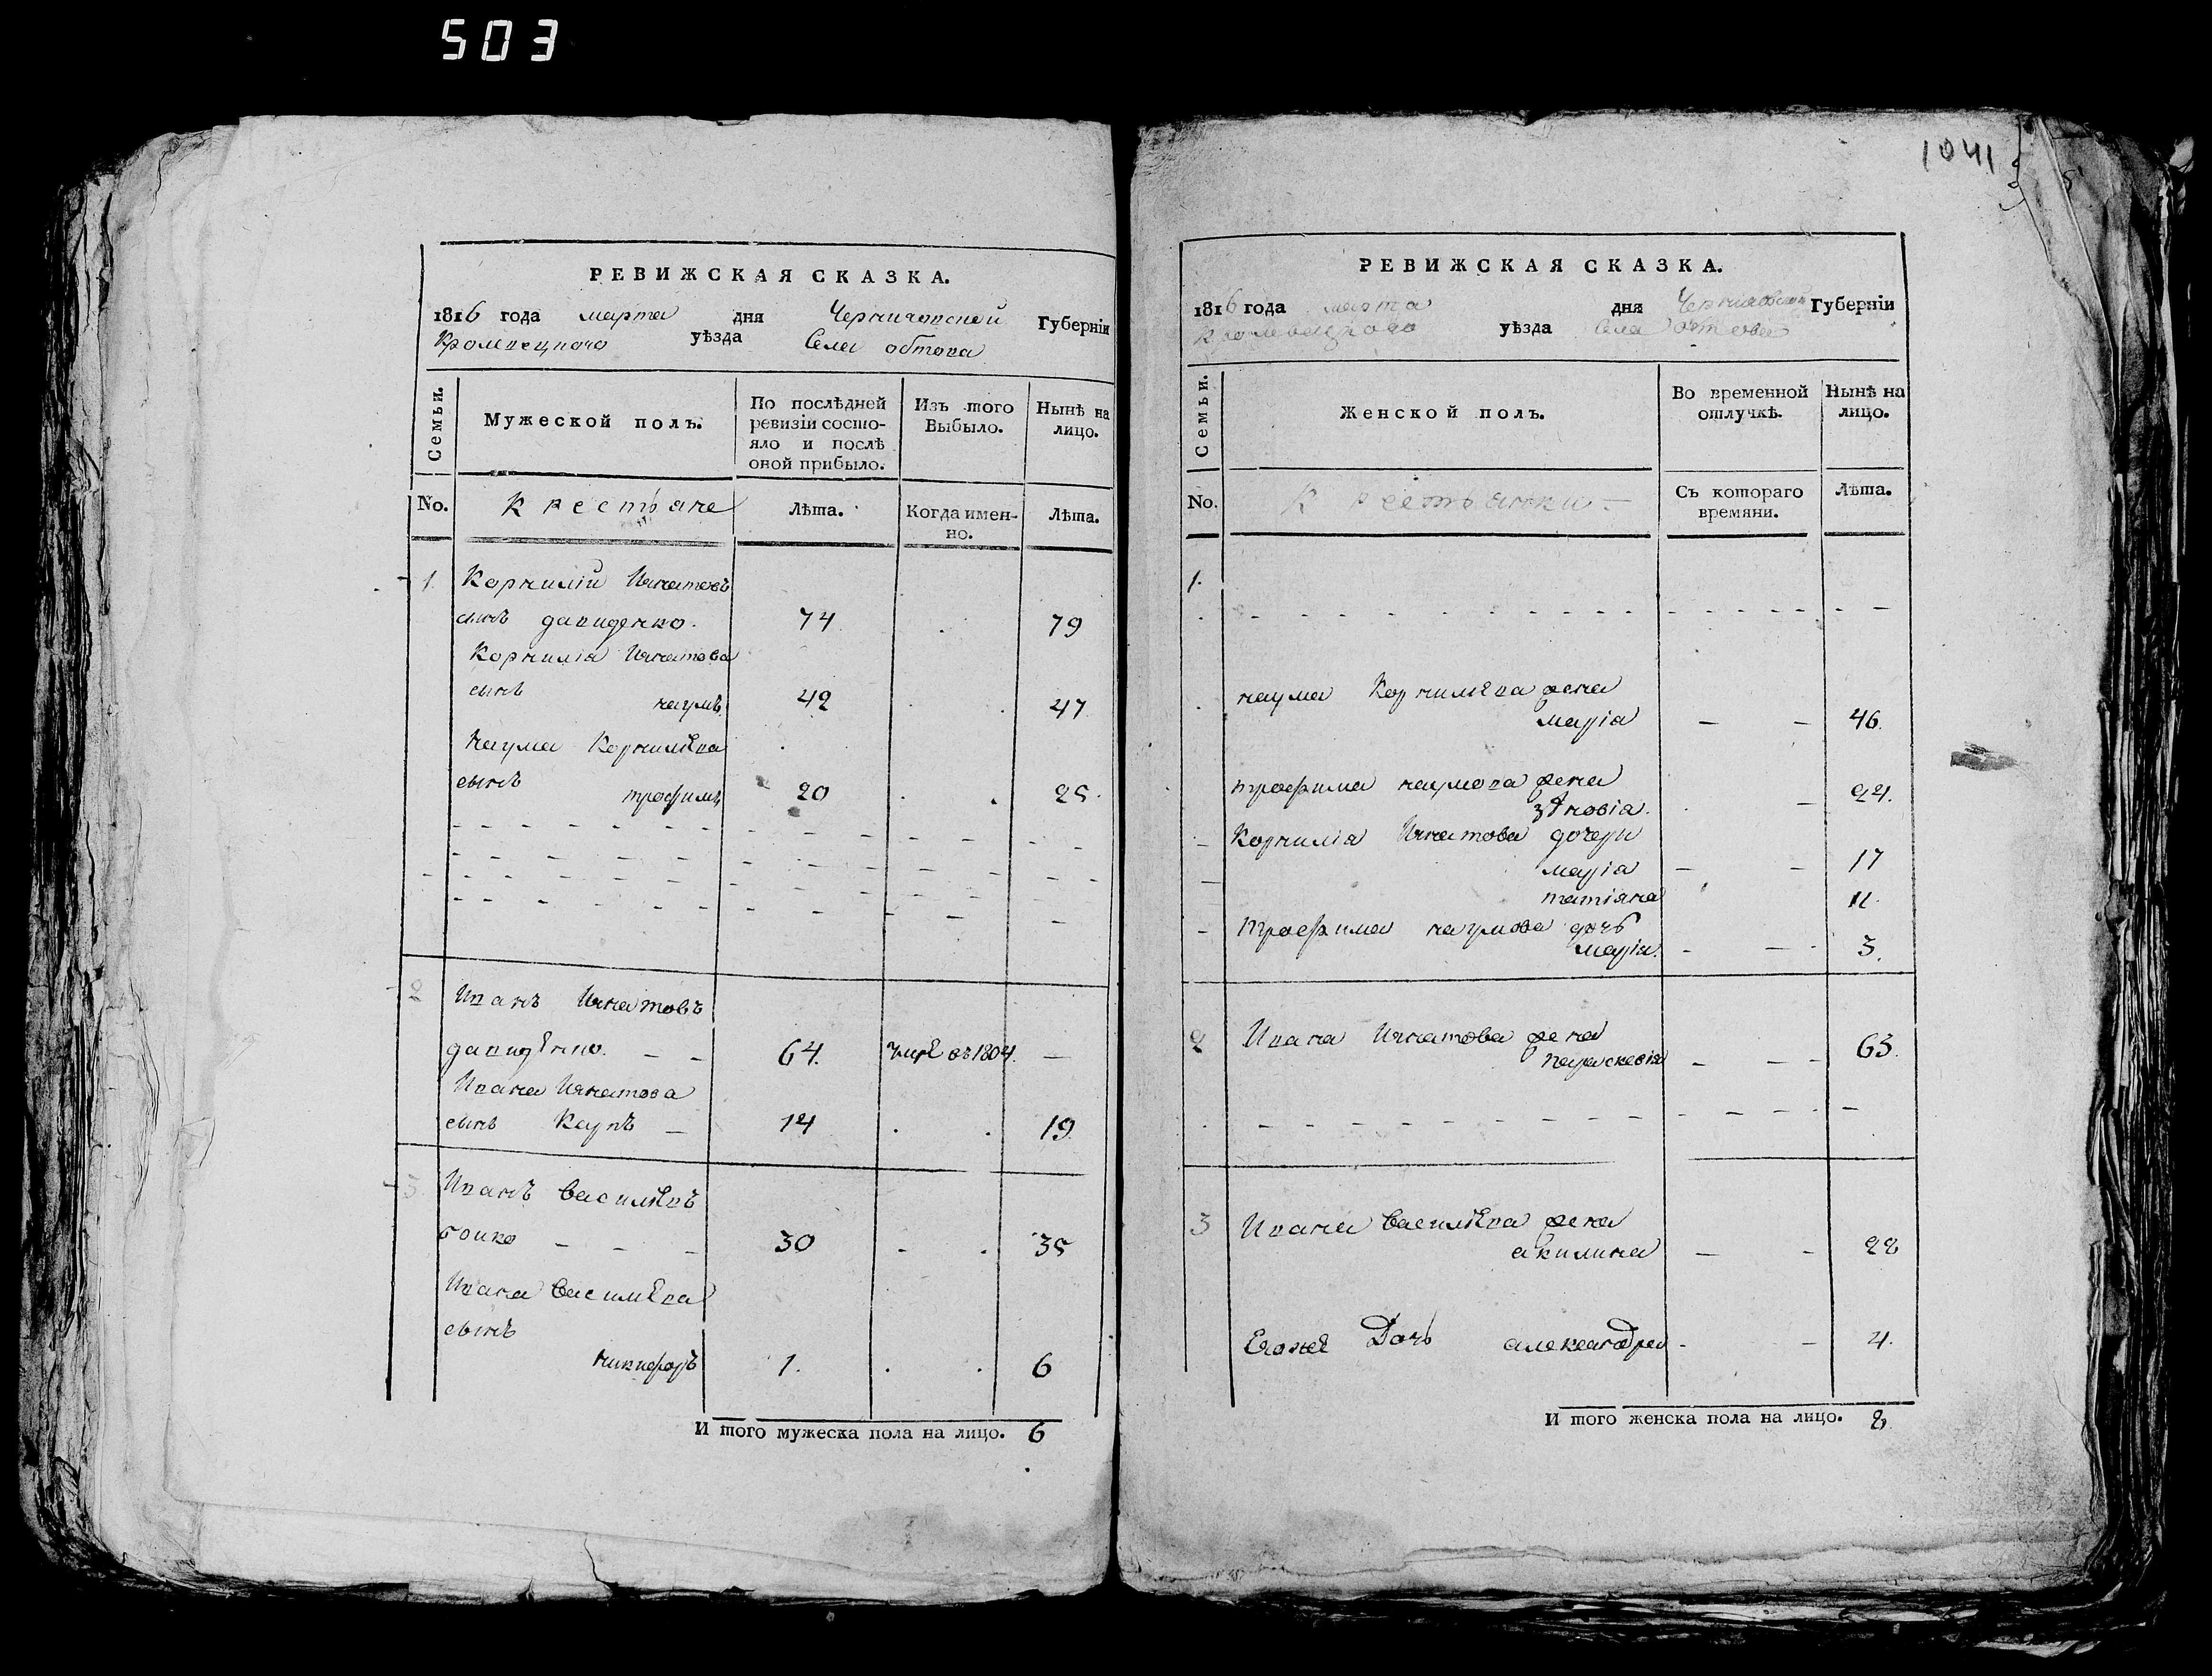 503
1041
РЕВИЖСКАЯ СКАЗКА.
1816 года марта дня Черниговской Губерніи
Кролевецкаго уѣзда Села обтова
Семьи.
Мужеской полъ.
По послѣдней
ревизіи состо-
яло и послѣ
оной прибыло.
Изъ того
Выбыло.
Нынѣ на
лицо.
No.
Крестьяне
Лѣта.
Когда имен-
но.
Лѣта.
1. Корнилій Игнатовъ
сынъ давиденко. 74 79
Корнилія Игнатова
сынъ наумъ 42 47
Наума Корнилѣва
сынъ трофимъ 20 25.
2 Иванъ Игнатовъ
давидѣнко. 64. умре въ 1804.
Ивана Игнатова
сынъ Карпъ 14 19
3 Иванъ Василѣвъ
бойко 30 35
Ивана Василѣва
сынъ
никифоръ 1. 6
И того мужеска пола на лицо. 6
РЕВИЖСКАЯ СКАЗКА.
1816 года марта дня Черниговской Губерніи
Кролевецкого уѣзда Села обтова
Семьи.
Женской полъ.
Во временной
отлучкѣ.
Нынѣ на
лицо.
No.
Крестьянки
Съ котораго
времяни.
Лѣта.
1.
наума Корнилѣва жена
марія 46.
трофима наумова жена
зѣновія. 24.
Корнилія Игнатова дочери
марія 17
татіяна 11.
трофима наумова дочь
марія. 3.
2 Ивана Игнатова жена
параскевія 63.
3 Ивана Василѣва жена
акилина 28
Егоже Дочь александра 4.
И того женска пола на лицо. 8